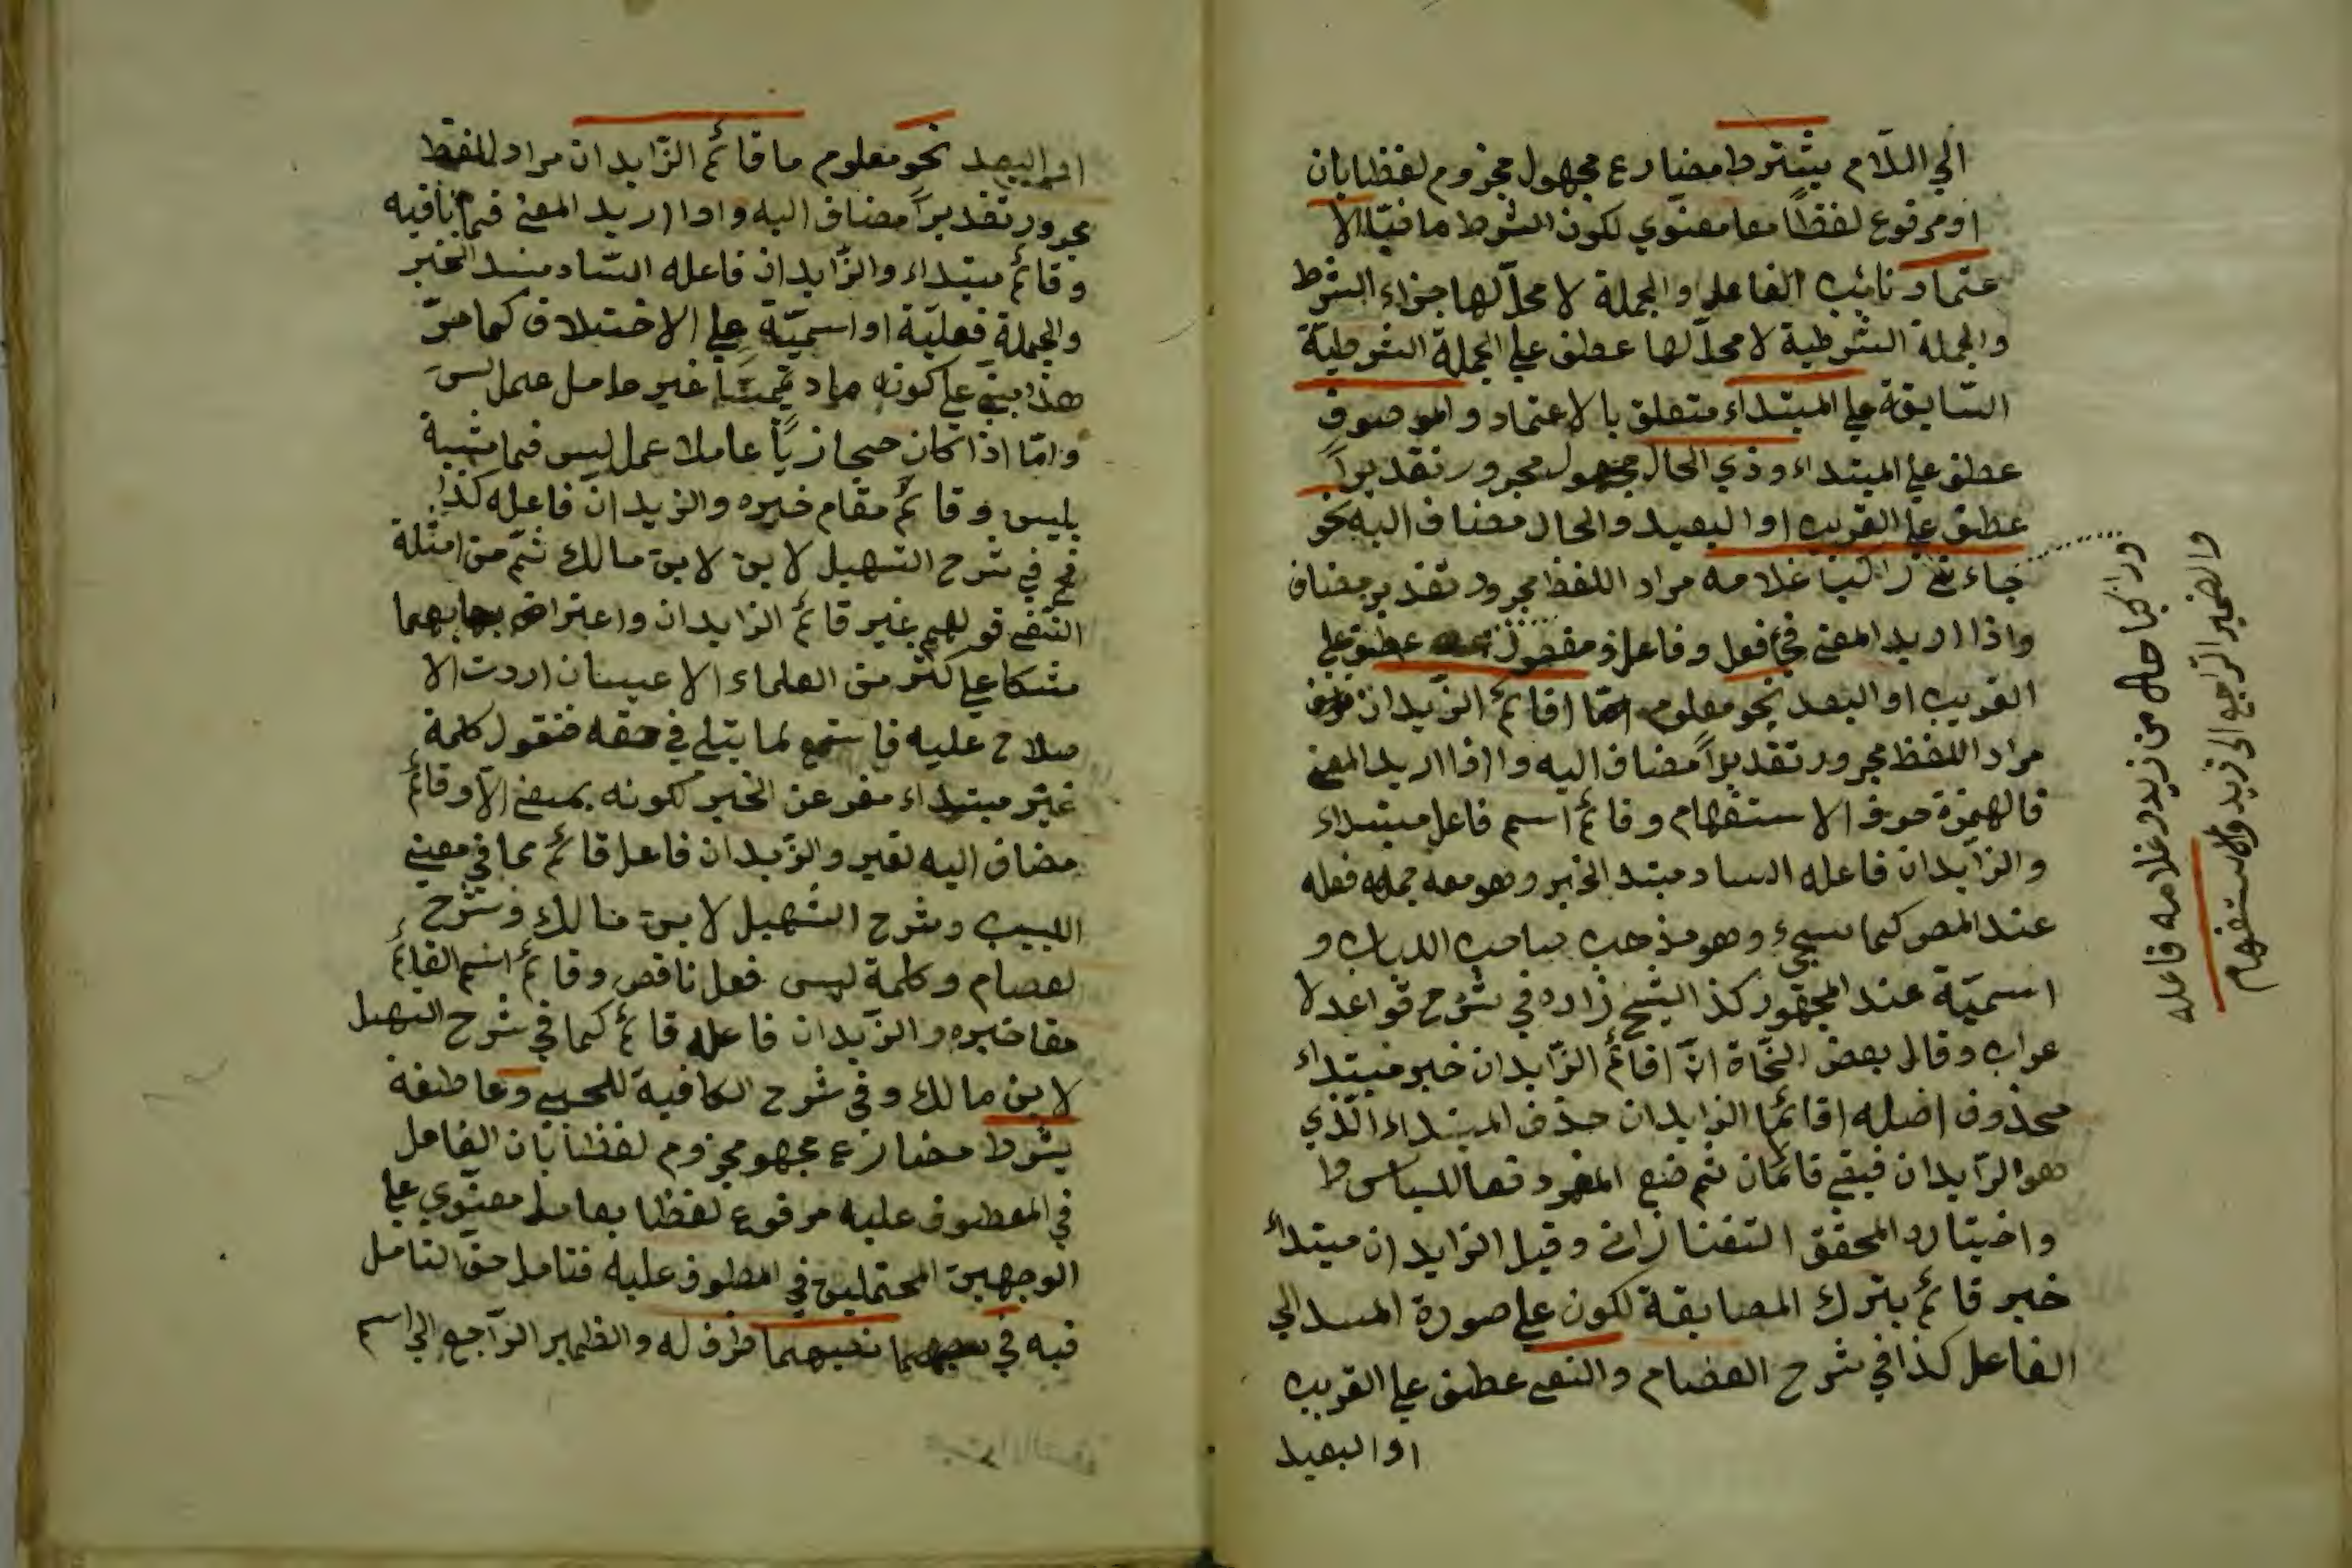 الي اللام يشترط مضارع مجهول مجزوم لفظا بان
او مرفوع لفظاً معا معنوي لكون الشرط ما ضيا الا
عتماد نائب الفاعل والجملة لا محل لها جزاء الشرط
والجملة الشرطية لا محل لها عطف علي الجملة الشرطية
السابقة علي المبتداء متعلق بالاعتماد والموصوف
عطف علي المبتداء وذي الحال مجرور تقديراً
عطف علي القريب او البعيد والحال مضاف اليه نحو
جاءني راكبا غلامه مراد اللفظ مجرور تقدير مضاف
واذا اريد المعني فجا فعل وفاعل ومفعول عطف علي
القريب او البعد نحو معلوم اقائم الزيدان
مراد اللفظ مجرور تقديراً مضاف اليه واذا اريد المعني
فالهمزة حرف الاستفهام وقائم اسم فاعل مبتداء
والزايدان فاعله الساد مبتد الخبر وهو معه جمله فعله
عند المص كما سيجيء وهو مذهب صاحب اللباب و
اسمية عند الجمهور كذا الشيخ زاده في شرح قواعد لا
عراب وقال بعض النحاة ان اقائم الزايدان خبر مبتداء
محذوف اصله اقائما الزايدان حذف المبتداء الذي
هو الزايدان فبقي قائمان ثم ضع المفرد
واختاره المحقق التفتازاني وقيل الزايدان مبتداء
خبر قائم بترك المصابقة لكون علي صورة المسند الي
الفاعل كذا في شرح العصام والنفي عطف علي القريب
او البعيد
وراكبا حال من زيد وغلامه فاعله
والضمير الراجع الي زيد والاستفهام
او البعد نحو معلوم ما قائم الزايدان مراد للفظ
مجرور تقديراً مضاف اليه واذا اريد المعني فما نافيه
وقائم مبتداء والزايدان فاعله الساد مسند الخبر
والجملة فعلية او اسمية علي الاختلاف كما مر
هذا مبني علي كونه ما د تميميا غير عامل عمل ليس
واما اذا كان حجازياً عاملا عمل ليس فما مشبهة
بليس وقائم مقام خبره والزيدان فاعله كذا
في شرح التسهيل لابن لابن مالك ثم من امثلة
النفي قولهم غير قائم الزايدان واعترا
مشكا علي اكثر من العلماء الاعيسان اردت الا
صلاح عليه فاستمع لما يتلي في حقه فنقول كلمة
غير مبتداء مفر عن الخبر لكونه بمعني الا وقائم
مضاف اليه لغير والزيدان فاعل قائم مما في معني
اللبيب وشرح التسهيل لابن مالك وشرح
لعصام وكلمة ليس فعل ناقص وقائم اسم القائم
مقا خبره والزيدان فاعله قائم كما في شرح التهيل
لابن مالك وفي شرح الكافية للحبيبي وعاطفة
يشرط مضارع مجهو مجزوم لفظا بان العامل
في المعطوف عليه مرفوع لفظا بعامل معنوي علي
الوجهين المحتملين في المطوف عليه فتامل حق التامل
فيه في نفيهما ظرف له والظمير الراجع الي اسم